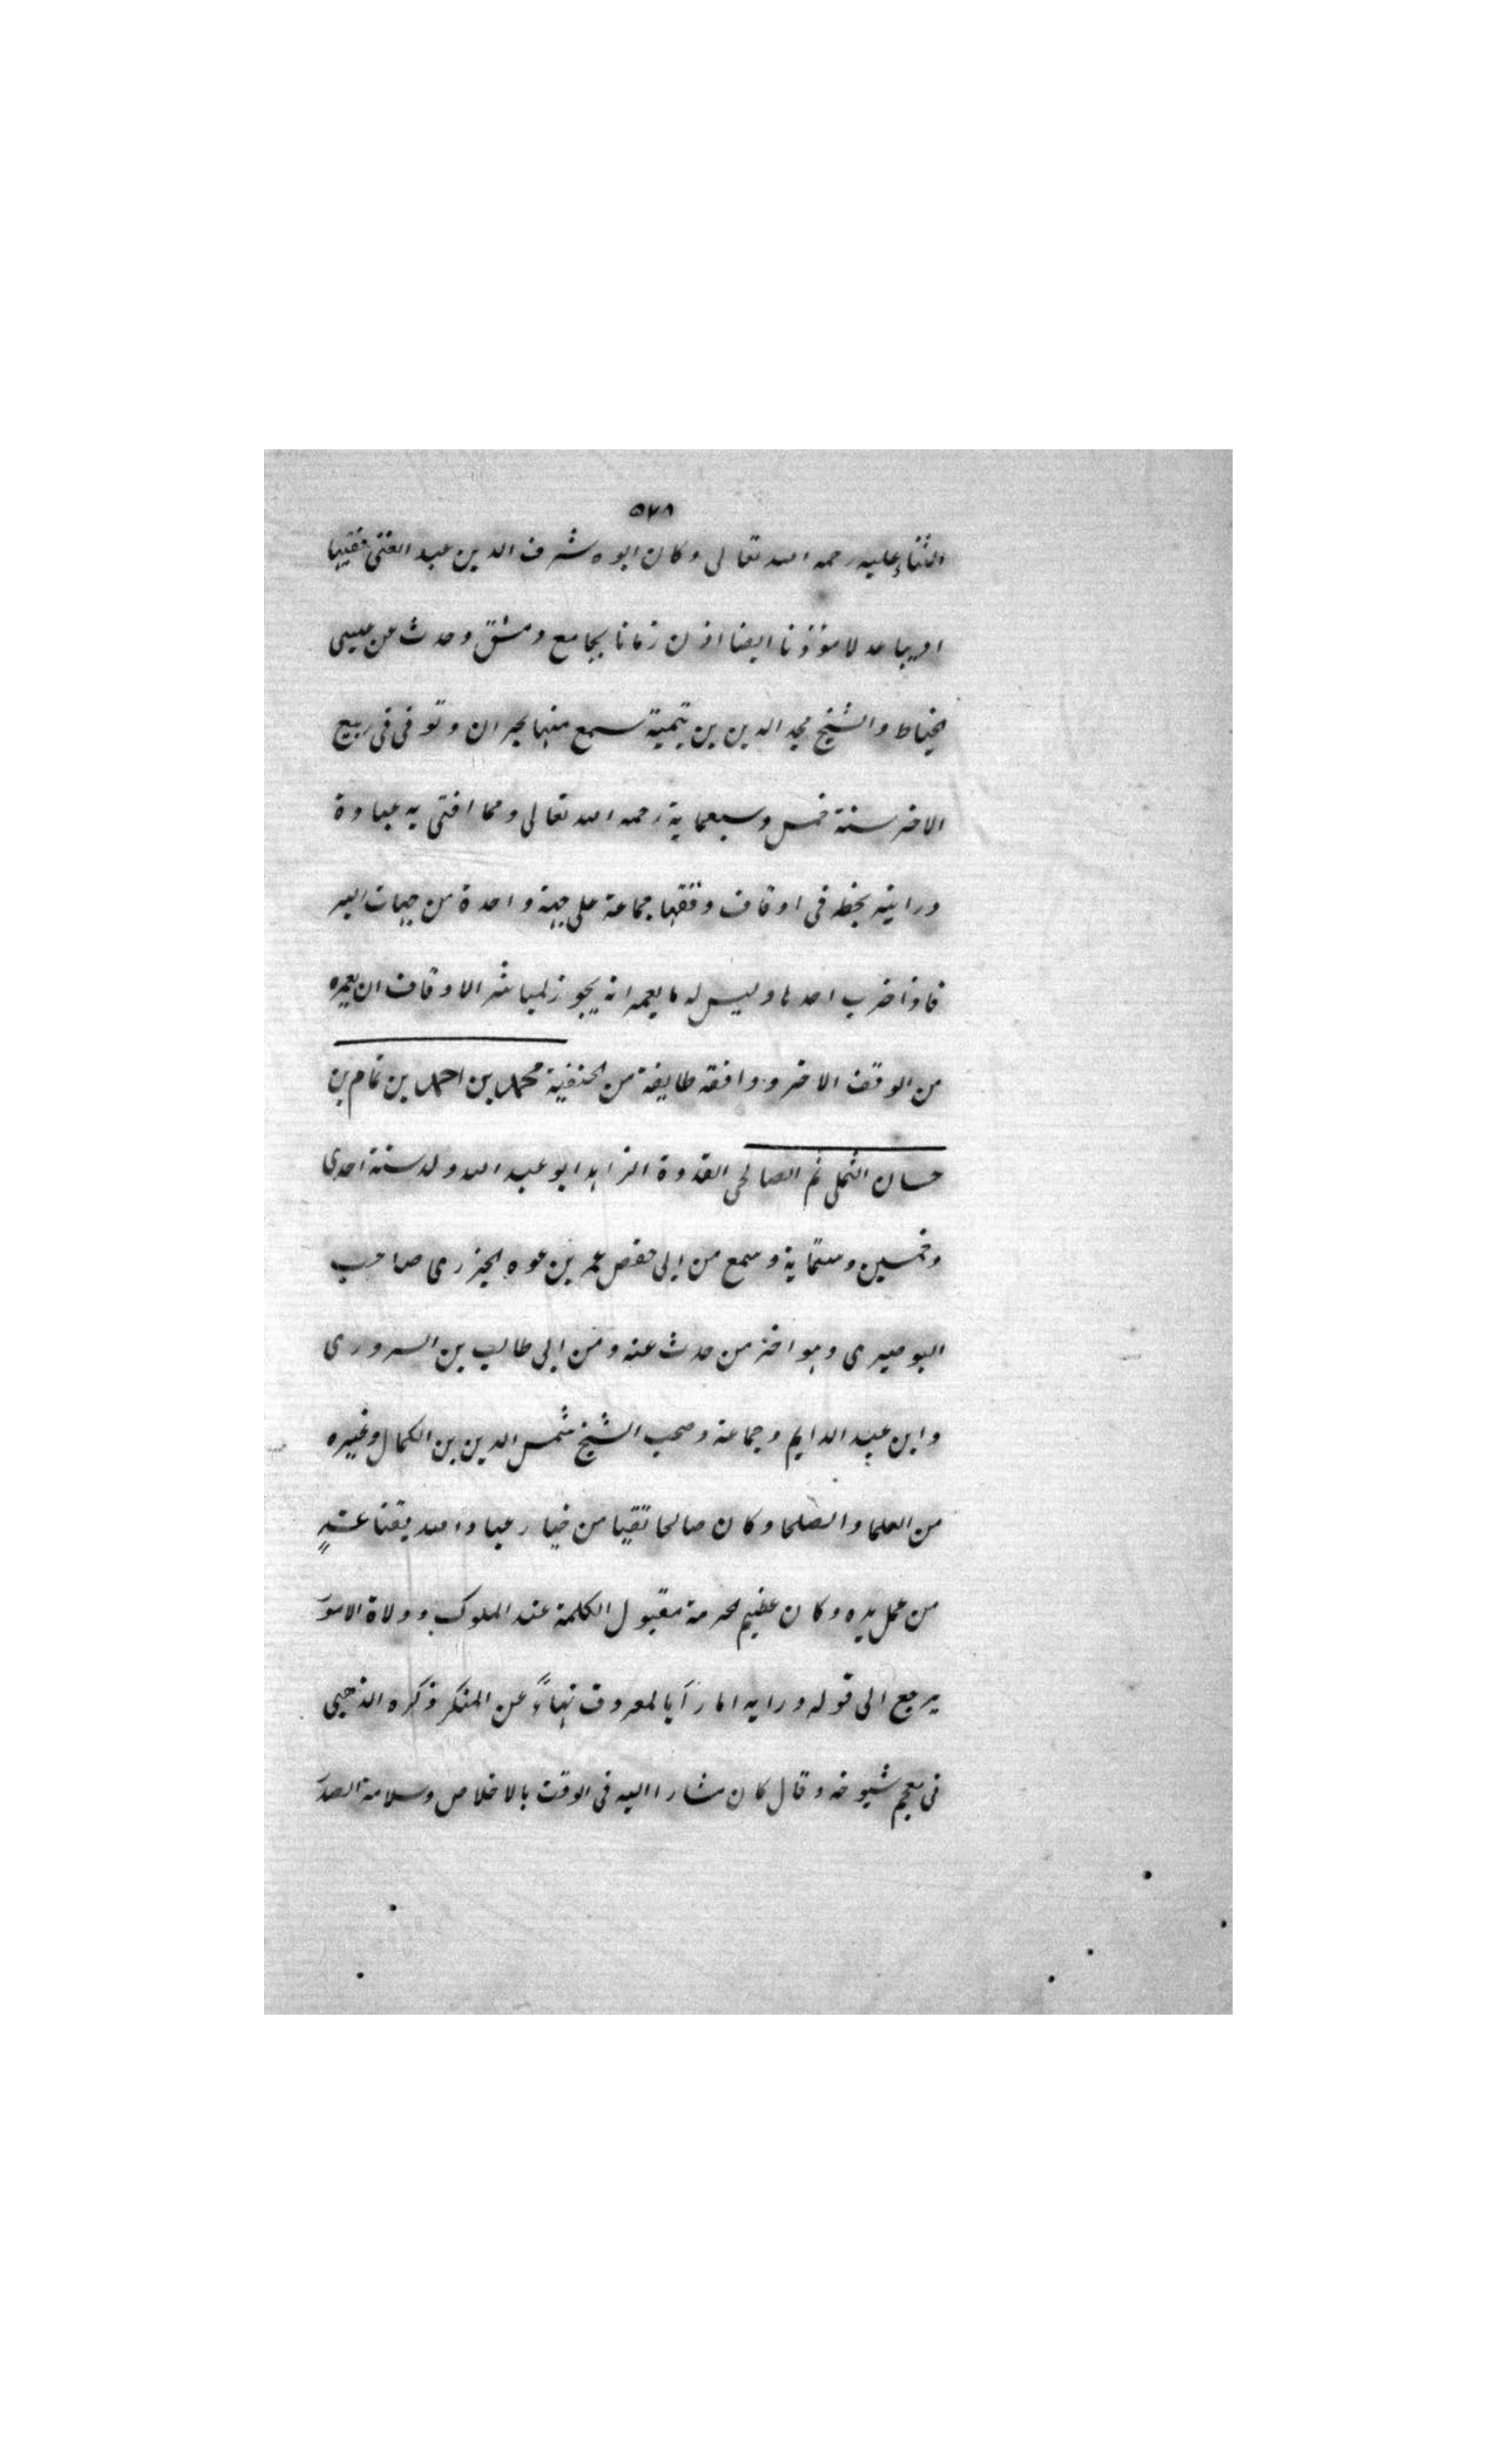 ٥٧٨
الثناء عليه رحمه الله تعالى وكان ابوه شرف الدين عبد الغنى فقيها
اديبا عدلا موذنا ايضا اذن زمانا بجامع دمشق وحدث عن عيسى
الخياط والشيخ مجد الدين بن تيمية سمع منهما بحران وتوفى فى ربيع
الاخر سنة خمس وسبعماية رحمه الله تعالى ومما افتى به عبادة
ورايته بخطه فى اوقاف وقفها جماعة على جهة واحدة من جهات البر
فاذا خرب احدها وليس له ما يعمر انه يجوز لمباشر الاوقاف ان يعمره
من الوقف الاخر ووافقه طايفة من الحنفية محمد بن احمد بن تمام بن
حسان التلى ثم الصالحى القدوة الزاهد ابو عبد الله ولد سنة احدى
وخمسين وستماية وسمع من ابى حفص عمر بن عوه الجزرى صاحب
البوصيرى وهو اخر من حدث عنه ومن ابى طالب بن السرورى
وابن عبد الدايم وجماعة وصحب الشيخ شمس الدين بن الكمال وغيره
من العلما والصلحا وكان صالحا تقيا من خيار عباد الله يقتات
من عمل يده وكان عظيم الحرمة مقبول الكلمة عند الملوك وولاة الامور
يرجع الى قوله ورايه امارآ بالمعروف نهاءً عن المنكر ذكره الذهبى
فى معجم شيوخه وقال كان مشارا اليه فى الوقت بالاخلاص وسلامة الصدر